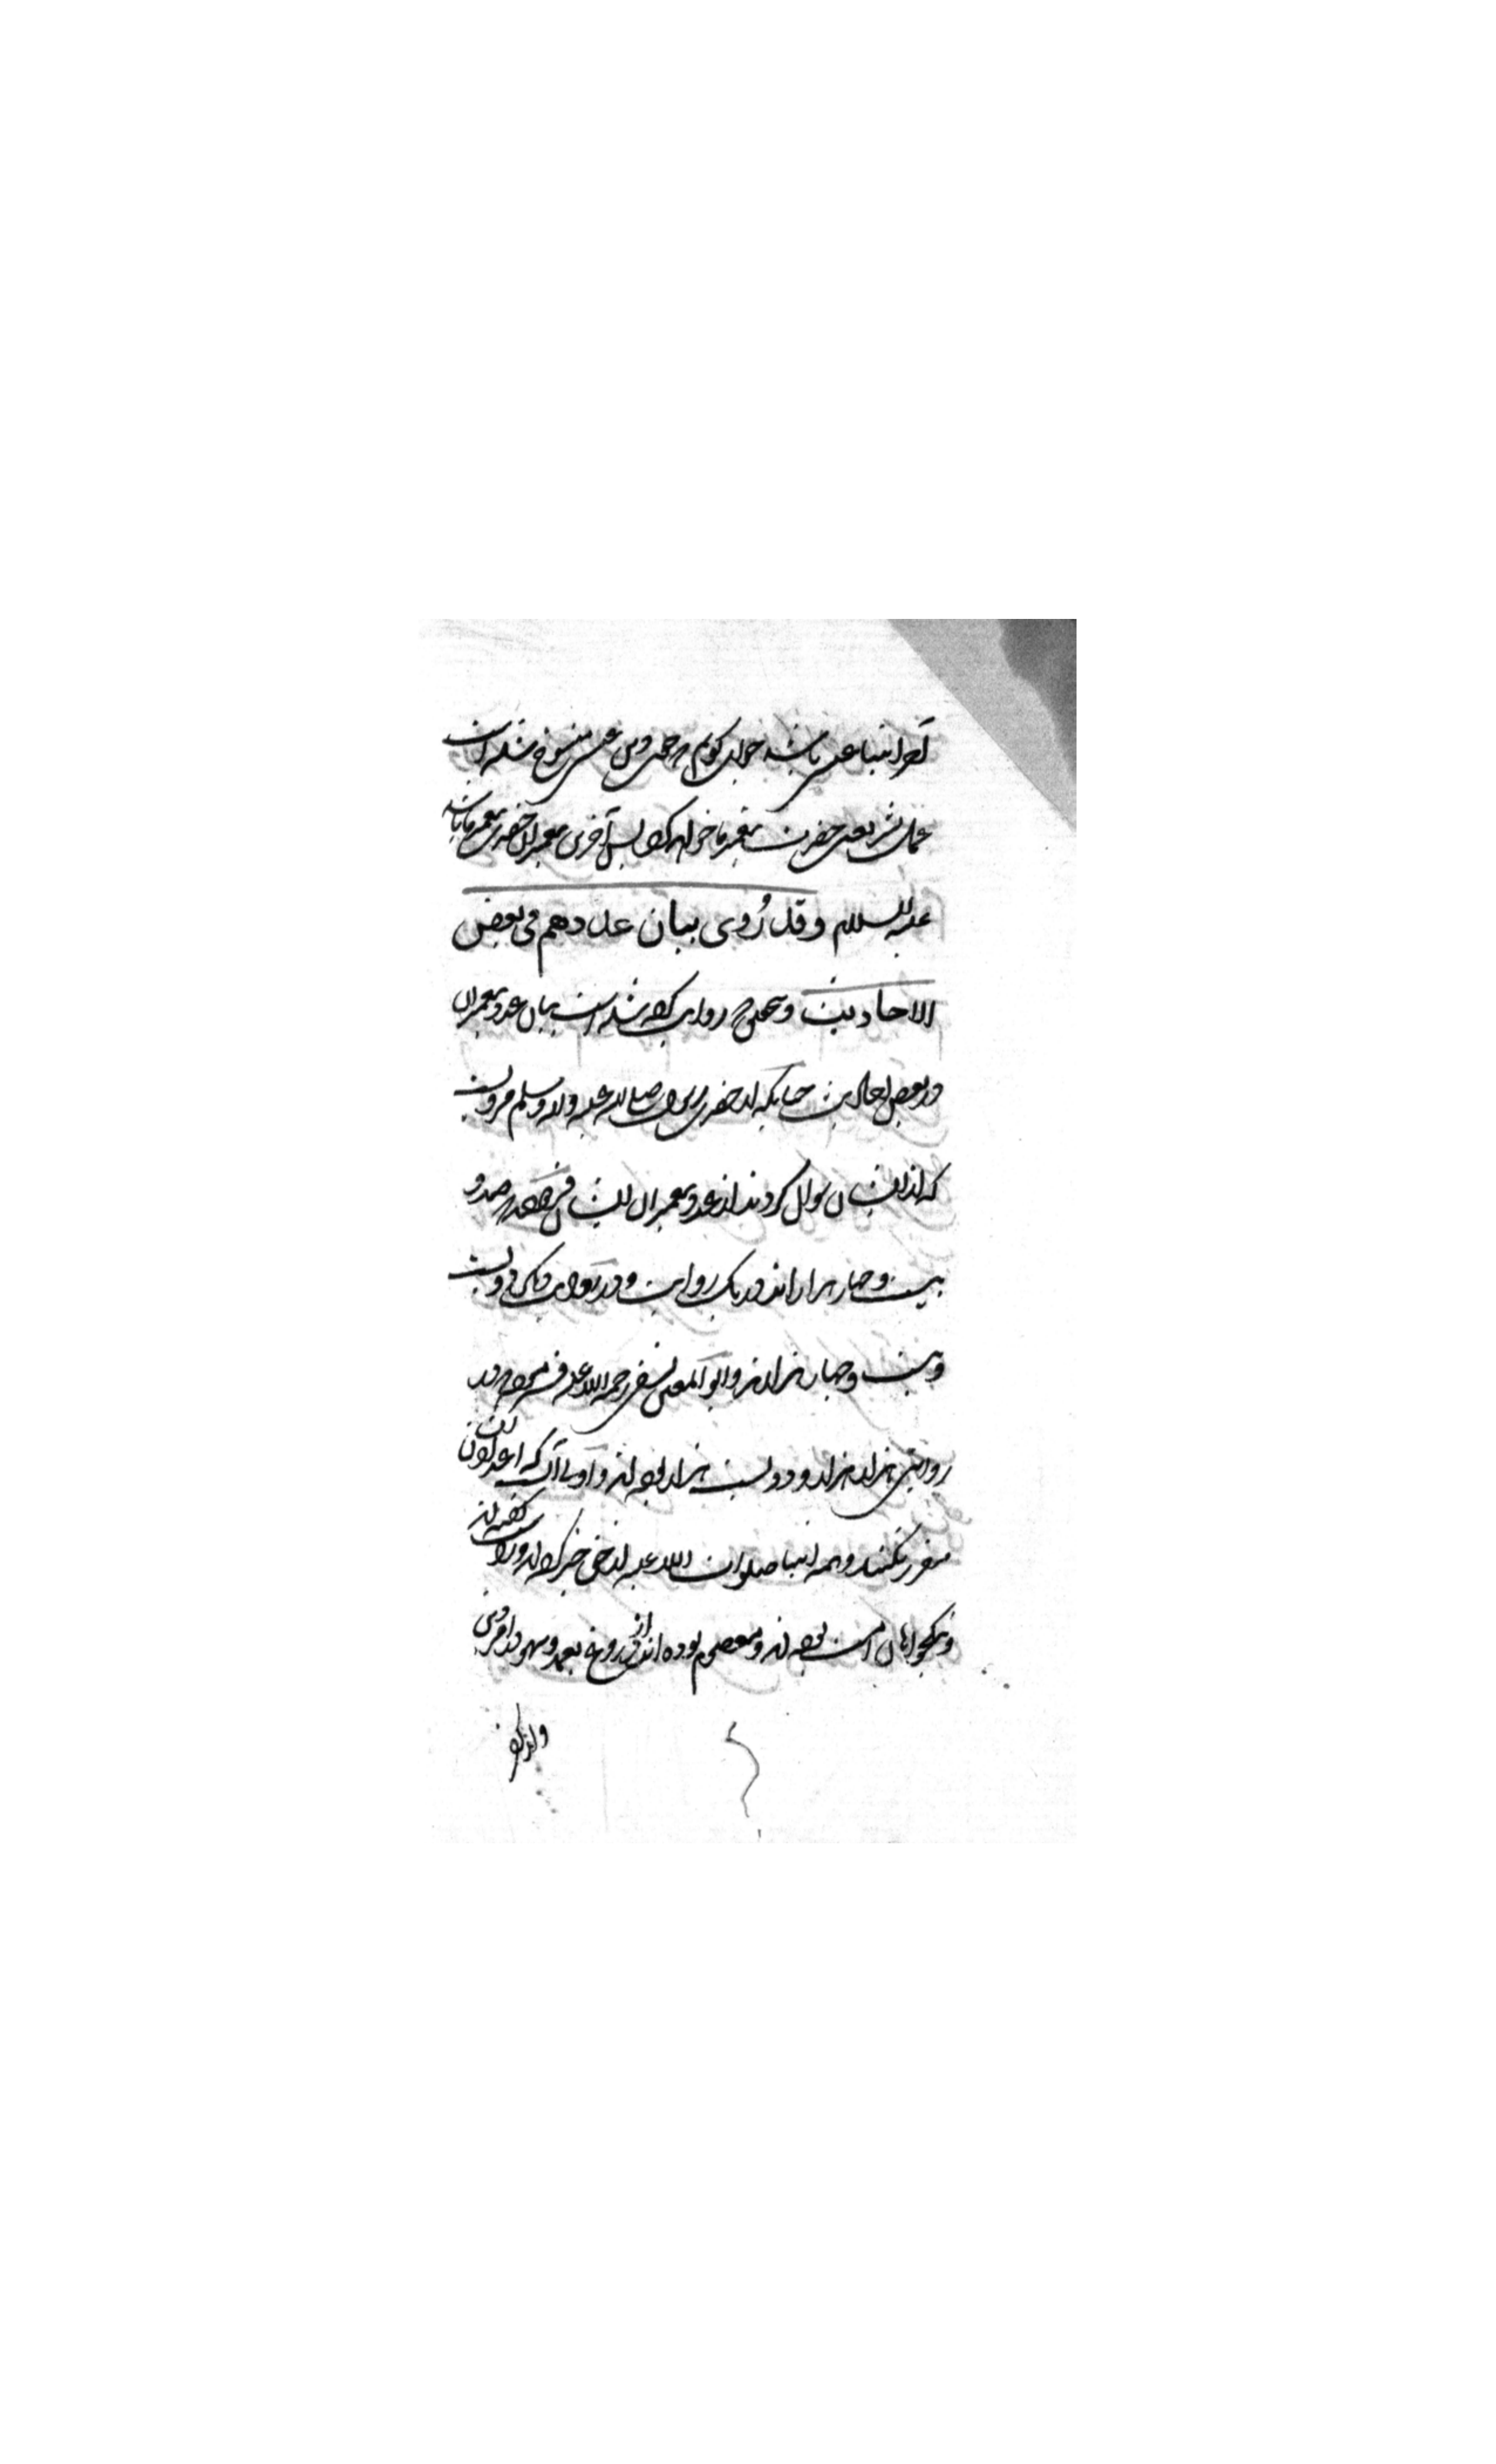 آخر انبیا عیسی باشد جواب گویم که چون دین عیسی منسوخ شده است
عمل بشریعت حضرت پیغمبر ما خواهد کرد پس آخرین پیغمبران حضرت پیغمبر ما باشد
علیه السلام وقد رُوی بیان عددهم فی بعض
الاحادیث و بتحقیق روایت کرده شده است بیان عدد پیغمبران
در بعض احادیث چنانکه از حضرت رسول صلی الله علیه وآله وسلم مرویست
که از ایشان سوال کردند از عدد پیغمبران ایشان فرمودند صد و
بیست و چهار هزار اند در یک روایت و در روایت دیگر دویست
و بیست و چهار هزار اند و ابو المعین نسفی رحمه الله علیه فرموده در
روایتی هزار هزار و دویست هزار بوده اند و اولی آنست که اعداد ایشان
مقرر نکنند و همه انبیا صلوات الله علیه از حق خبر کرده اند و راست گفته اند
و نیکخواهان امت بوده اند و معصوم بوده اند از دروغ بعمد و سهو در امر دین
و از کفر